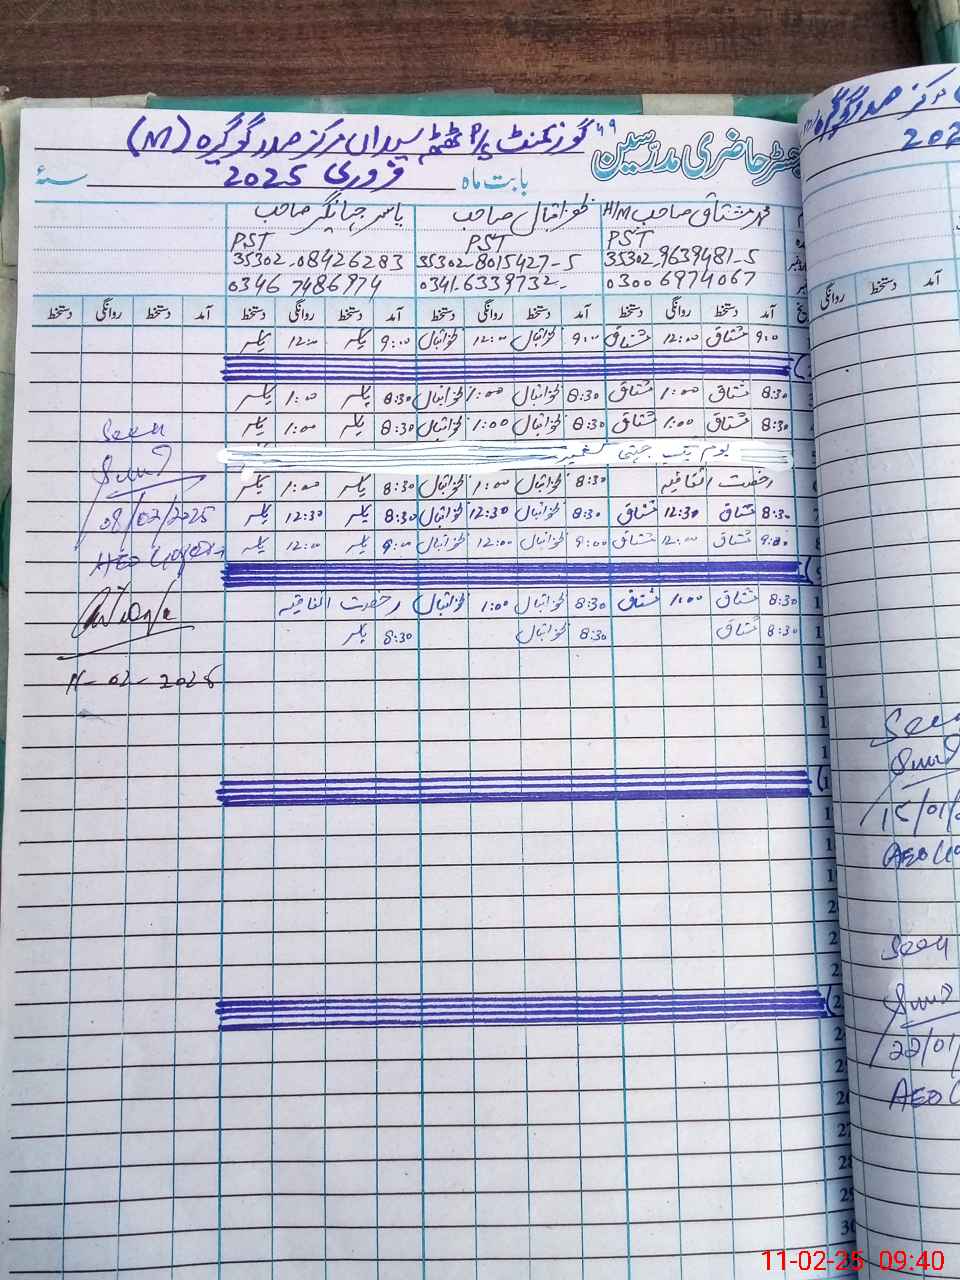 رجسٹر حاضری مدرسین گورنمنٹ پ/س ٹھٹھہ سیداں مرکز صدر گوگیرہ (M)
بابت ماہ فروری 2025 سنہ
محمد مشتاق صاحب H/M ظفر اقبال صاحب یاسر جہانگیر صاحب
PST PST PST
35302-9639481-5 35302-8015427-5 35302-08426283
0300 6974067 0341-6339732- 0346 7486974
آمد دستخط روانگی دستخط آمد دستخط روانگی دستخط آمد دستخط روانگی دستخط آمد دستخط روانگی دستخط
9:00 مشتاق 12:00 مشتاق 9:00 ظفر اقبال 12:00 ظفر اقبال 9:00 یاسر 12:00 یاسر
8:30 مشتاق 1:00 مشتاق 8:30 ظفر اقبال 1:00 ظفر اقبال 8:30 یاسر 1:00 یاسر
8:30 مشتاق 1:00 مشتاق 8:30 ظفر اقبال 1:00 ظفر اقبال 8:30 یاسر 1:00 یاسر
یوم یک جہتی کشمیر
رخصت اتفاقیہ 8:30 ظفر اقبال 1:00 ظفر اقبال 8:30 یاسر 1:00 یاسر
8:30 مشتاق 12:30 مشتاق 8:30 ظفر اقبال 12:30 ظفر اقبال 8:30 یاسر 12:30 یاسر
9:00 مشتاق 12:00 مشتاق 9:00 ظفر اقبال 12:00 ظفر اقبال 9:00 یاسر 12:00 یاسر
8:30 مشتاق 1:00 مشتاق 8:30 ظفر اقبال 1:00 ظفر اقبال رخصت اتفاقیہ
8:30 مشتاق 8:30 ظفر اقبال 8:30 یاسر
Seen
08/02/2025
AEO
11-02-2025
آمد دستخط روانگی
Seen
15/01/
AEO
Seen
22/01/
AEO
27
28
29
30
11-02-25 09:40